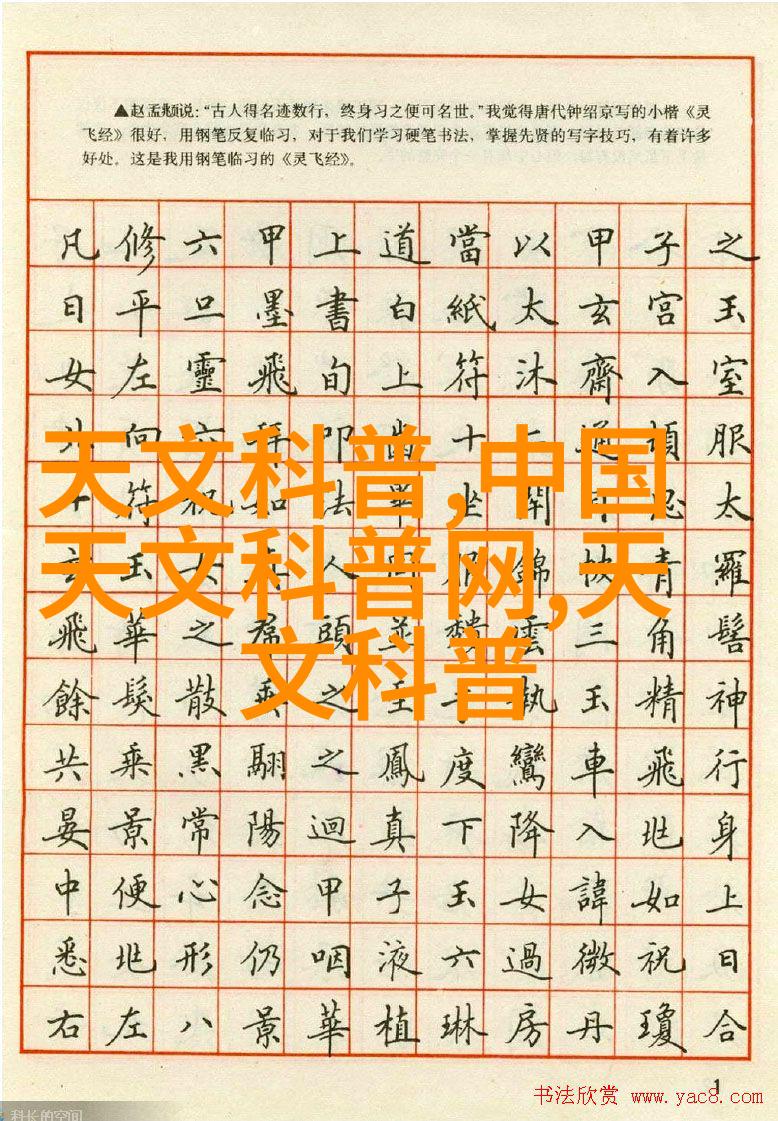 ▲赵孟頫说:“古人得名迹数行，终身习之便可名世。”我觉得唐代钟绍京写的小楷《灵
飞经》很好，用钢笔反复临习，对于我们学习硬笔书法，掌握先贤的写字技巧，有着许多
好处。这是我用钢笔临习的《灵飞经》。
凡修六甲上道當以甲子之
日平旦墨書白紙太玄宮玉
女左靈飛旬上符沐齋入室
北向六拜叩齒十二通頓服
天文科普,中国
十符祝如法畢坐閉目思太
天文科普网,天
玄玉女真人同服錦帔青羅
飛華之帬頭並頹雲三角髻
文科普
餘髮散垂之至手執玉精神
共乘黑翮之鳳度鸞車飛行
晏景常陽迴真下降入兆身
中便心念甲子玉女諱如上
悉兆形仍咽液六過微祝日
右左八景華植琳房丹瓊合
1
书法欣赏 www.yac8.com
科长的空间